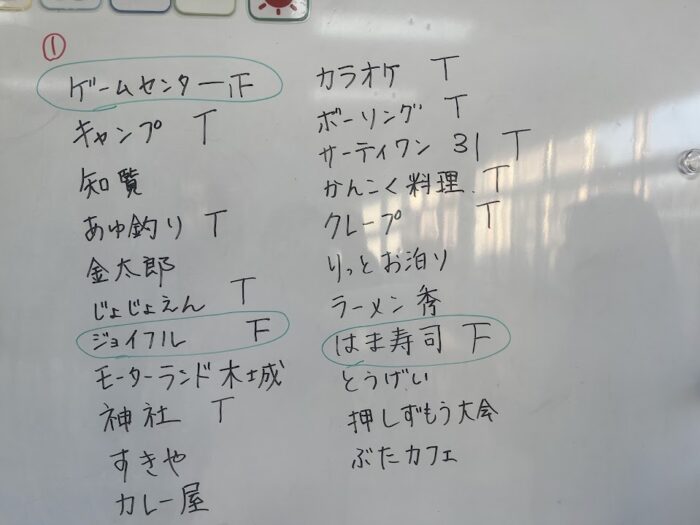 ①
ゲームセンター 正
キャンプ T
知覧
あゆ釣り T
金太郎
じょじょえん T
ジョイフル 下
モーターランド木城
神社 T
すきや
カレー屋
カラオケ T
ボーリング T
サーティワン 31 T
かんこく料理 T
クレープ T
りっとお泊り
ラーメン 秀
はま寿司 下
とうげい
押しずもう大会
ぶたカフェ